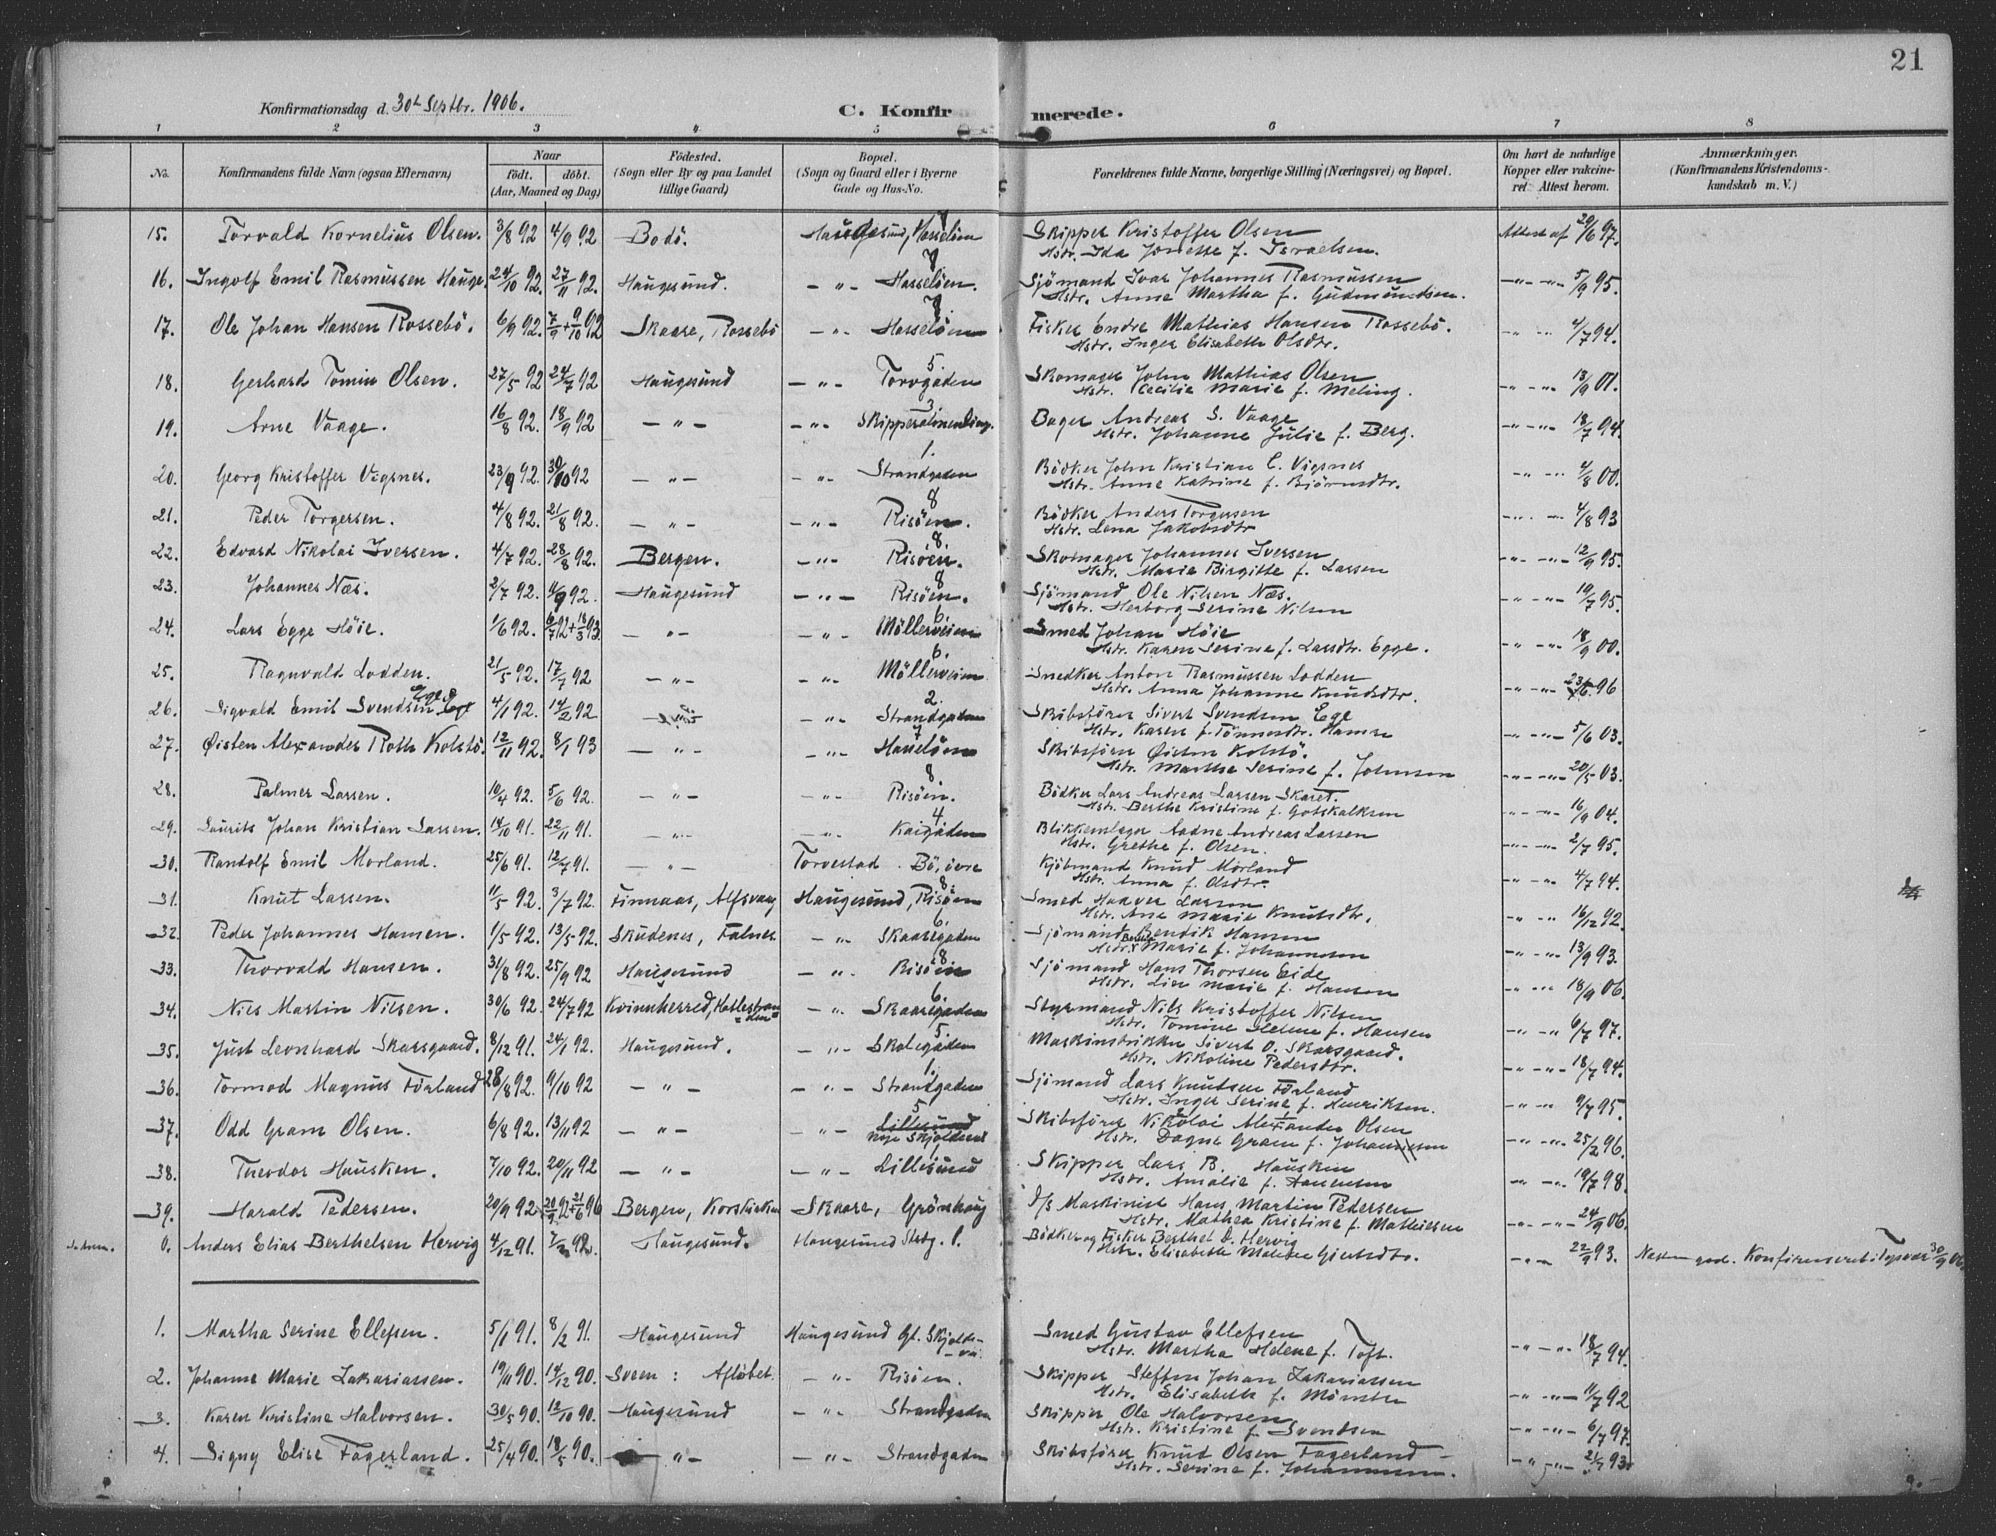 21
Konfirmationsdag d. 30te Septbr. 1906.
C. Konfirmerede.
1 2 3 4 5 6 7 8
No. Konfirmandens fulde Navn (ogsaa Efternavn) Naar født. døbt. (Aar, Maaned og Dag) Fødested. (Sogn eller By og paa Landet tillige Gaard) Bopæl. (Sogn og Gaard eller i Byerne Gade og Hus-No. Forældrenes fulde Navne, borgerlige Stilling (Næringsvei) og Bopæl. Om havt de naturlige Kopper eller vaccineret. Attest herom. Anmærkninger. (Konfirmandens Kristendomskundskab m. V.)
15. Torvald Kornelius Olsen. 3/8 92 4/9 92 Bodö. Haugesund, Hasselöen 7 Skipper Kristoffer Olsen Attest af 29/6 97.
Hstr. Ida Jonette f. Israelsen.
16. Ingolf Emil Rasmussen Hauge. 24/10 92. 27/11 92. Haugesund. – " – Hasselöen. 7 Sjömand Ivar Johannes Rasmussen – " – 5/9 95.
Hstr. Anne Martha f. Gudmundsen.
17. Ole Johan Hansen Rossebö. 6/9 92. 7/9 + 9/10 92 Skaare, Rossebö – " – Hasselöen 7 Fisker Endre Mathias Hansen Rossebö. – " – 4/7 94.
Hstr. Inger Elisabeth Olsdtr.
18. Gerhard Tomin Olsen. 27/5 92 24/7 92 Haugesund – " – Torvgaden 5. Skomager John Mathias Olsen – " – 13/9 01.
Hstr. Cecilie Marie f. Meling.
19. Arne Vaage. 16/8 92. 18/9 92 – " – – " – 3. Bager Andreas S. Vaage – " – 18/7 94.
Hstr. Johanne Julie f. Berg.
20. Georg Kristoffer Vigsnes. 23/9 92. 30/10 92 – " – – " – Strandgaden 1. Bödker John Kristian C. Vigsnes – " – 4/8 00.
Hstr. Anne Katrine f. Björnsdtr.
21. Peder Torgersen. 4/8 92. 21/8 92. – " – – " – Risöen. 8 Bödker Anders Torgersen – " – 4/8 93
Hstr. Lena Jakobsdtr
22. Edvard Nikolai Iversen. 4/7 92. 28/8 92. Bergen. – " – Risöen. 8. Skomager Johannes Iversen – " – 12/9 95.
Hstr. Marie Birgitte f. Larsen
23. Johannes Næs. 2/7 92. 4/9 92. Haugesund – " – Risöen. 8 Sjömand Ole Nilsen Næs. – " – 19/7 95.
Hstr. Herborg Serine Nilsen
24. Lars Egge Höie. 1/6 92. 6/7 92 + 18/3 93 – " – – " – Möllerveien 6. Smed Johan Höie – " – 18/9 00.
Hstr. Karen Serine f. Larsdtr. Egge.
25. Ragnvald Lodden. 21/5 92. 17/7 92 – " – – " – Möllerveien 6. Snedker Anton Rasmussen Lodden – " – 96
Hstr. Anna Johanne Knudsdtr.
26. Sigvald Emil Svendsen Ege 4/1 92. 14/2 92 – " – Strandgaden 2. Skibsförer Sivert Svendsen Ege – " – 5/6 03.
Hstr. Karen f. Tönnesdtr. Hamre
27. Øisten Alexander Roth Kolstö. 12/11 92. 8/1 93 – " – – " – Hasselöen 7 Skibsförer Øisten Kolstö. – " – 20/5 03.
Hstr. Marthe Serine f. Johnsen
28. Palmer Larsen. 10/4 92. 5/6 92. – " – – " – Risöen. 8. Bödker Lars Andreas Larsen Skaret. – " – 16/9 04.
Hstr. Berthe Kristine f. Gotskalksen
29. Laurits Johan Kristian Larsen. 14/10 91. 22/11 91. – " – – " – Kaigaden 4 Blikkenslager Aadne Andreas Larsen – " – 2/7 95.
Hstr. Grethe f. Olsen.
30. Randolf Emil Mørland. 25/6 91. 12/7 91. – " – Torvestad. Bö, övre Kjöbmand Knud Mørland – " – 4/7 94.
Hstr. Anna f. Olsdtr.
31. Knut Larsen. 11/5 92. 3/7 92. Finnaas, Alfsvaag Haugesund, Risöen 8. Smed Haaver Larsen – " – 16/12 92.
Hstr. Ane Marie Knutsdtr.
32. Peder Johannes Hansen. 1/5 92. 13/5 92. Skudenes, Falnes – " – Skaaregaden 6. Sjömand Bendik Hansen – " – 13/9 93.
Hstr. Berthe Marie f. Johannesen
33. Thorvald Hansen. 31/8 92. 25/9 92 Haugesund – " – Risöen 8 Sjömand Hans Thorsen Eide – " – 18/9 06.
Hstr. Lier Marie f. Hansen
34. Nils Martin Nilsen. 30/6 92. 24/7 92 Kvinnherred, Hatlestranden – " – Skaaregaden 6. Styrmand Nils Kristoffer Nilsen – " – 6/7 97.
Hstr. Tomine Helene f. Hansen
35. Just Leonhard Skarsgaard. 8/12 91. 24/1 92. Haugesund. – " – Skolegaden 5. Maskinstrikker Sivert O. Skarsgaard. – " – 18/7 94.
Hstr. Nikoline Pedersdtr.
36. Tormod Magnus Förland 28/8 92. 9/10 92 – " – – " – Strandgaden 1. Sjömand Lars Knutsen Förland – " – 9/7 95.
Hstr. Inger Serine f. Henriksen.
37. Odd Gram Olsen. 6/8 92. 13/11 92 – " – – " – Lillesund 5 nye Skjoldvei Skibsförer Nikolai Alexander Olsen – " – 25/2 96.
Hstr. Dagne Gram f. Johannesen
38. Theodor Hausken. 7/10 92. 20/11 92 – " – – " – Lillesund Skipper Lars B. Hausken – " – 19/7 98.
Hstr. Amalie f.
39. Harald Pedersen. 20/9 92. 96 Bergen, Korskirken Skaare, Grönhaug d/s Maskinist Hans Martin Pedersen – " – 24/9 06.
Hstr. Mathea Kristine f. Mathiesen
0. Anders Elias Berthelsen Hervig 4/12 91. 7/2 92. Haugesund. Haugesund Strg. 1. Bödker og Fisker Berthel D. Hervig – " – 22/9 93. Næsten god. Konfirmeret i Tysvær 30/9 06.
Hstr. Elisabeth Malene
1. Martha Serine Ellefsen. 5/1 91. 8/2 91. Haugesund Haugesund Gl. Skjoldsvei Smed Gustav Ellefsen – " – 18/7 94.
Hstr. Martha Helene f. Toft.
2. Johanne Marie Zakariassen. 19/11 90. 14/12 90. Sveen: Aflöbet. – " – Risöen. Skipper Steffen Johan Zakariassen – " – 11/7 92
Hstr. Elisabeth f. Mönster
3. Karen Kristine Halvorsen. 30/5 90. 12/10 90. Haugesund – " – Strandgaden Skipper Ole Halvorsen – " – 6/7 97.
Hstr. Kristine f. Svendsen
4. Signy Elise Fagerland. 25/4 90. 18/5 90. – " – – " – Strandgaden Skibsförer Knud Olsen Fagerland – " – 93
Hstr. Serine f. Johannesen.